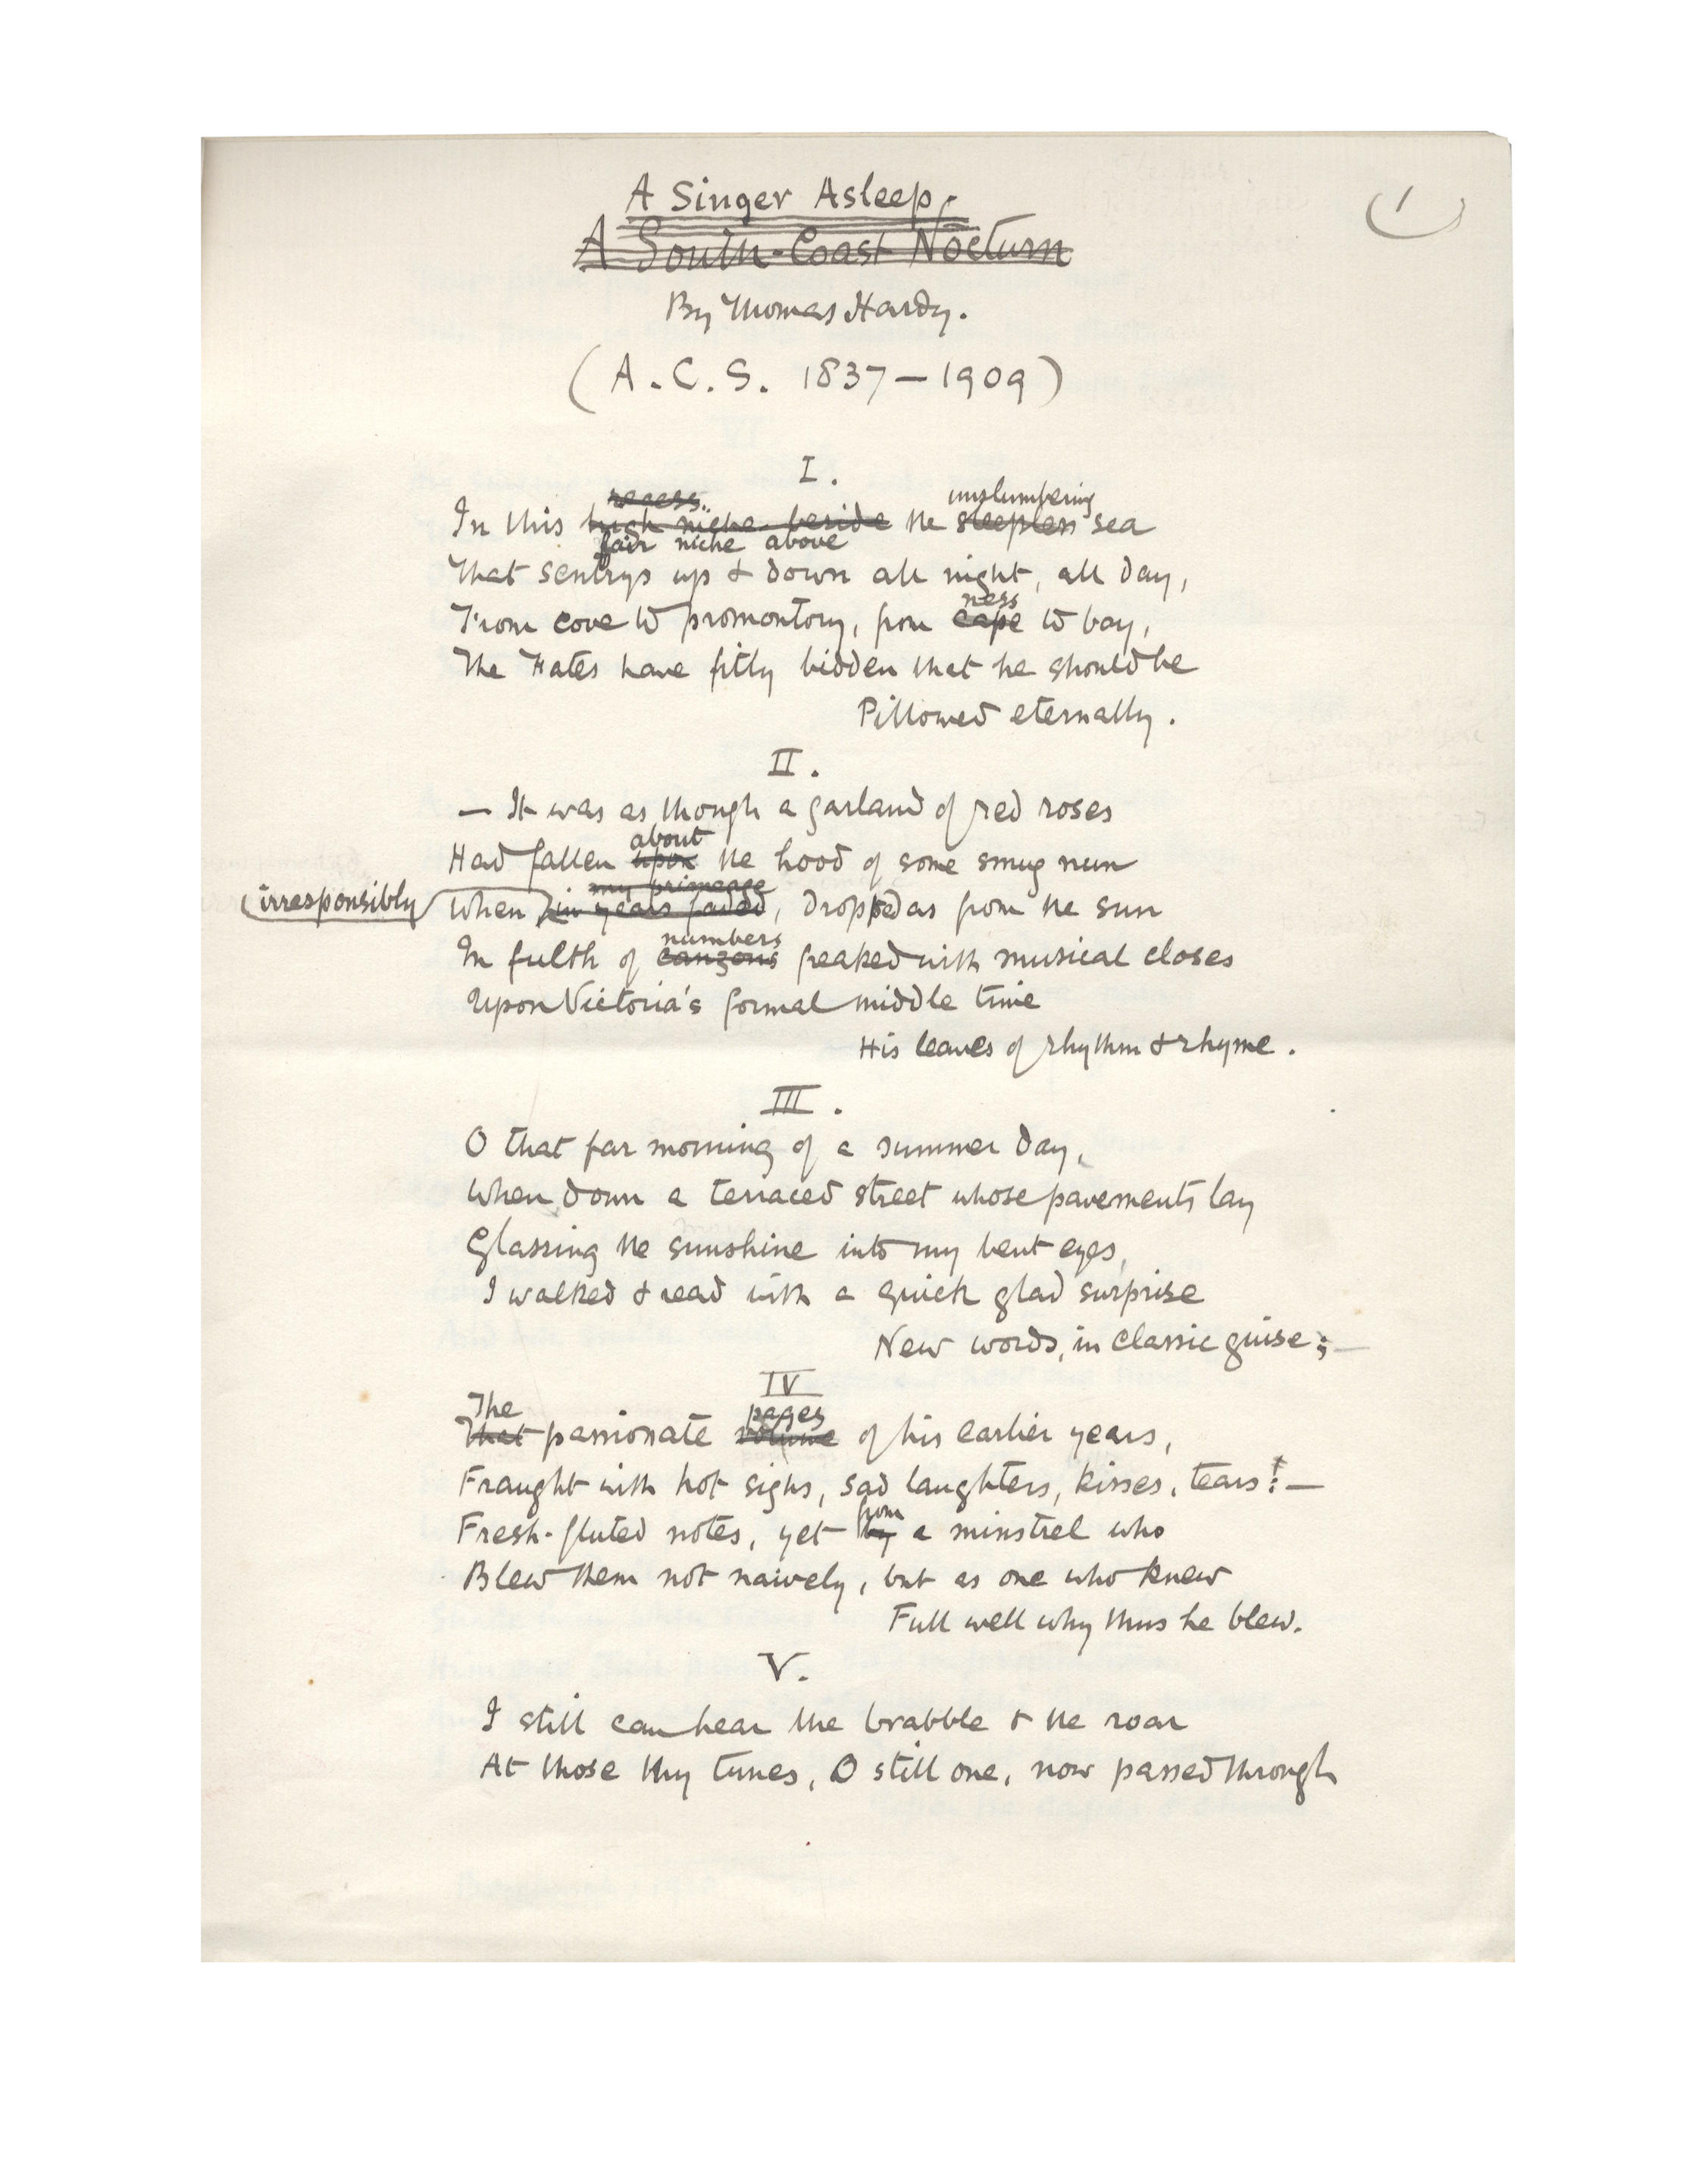 A Singer Asleep.
A South-Coast Nocturn
(1)
By Thomas Hardy.
(A.C.S. 1837–1909)
I.
recess unslumbering
In this high niche beside the sleepless sea
fair niche above
That sentrys up & down all night, all day,
ness
From cove to promontory, from cape to bay,
The Fates have fitly bidden that he should be
Pillowed eternally.
II.
— It was as though a garland of red roses
about
Had fallen upon the hood of some smug nun
my primeage
irresponsibly When in years faded, dropped as from the sun
numbers
In fulth of canzons freaked with musical closes
Upon Victoria's formal middle time
His leaves of rhythm & rhyme.
III.
O that far morning of a summer day,
When down a terraced street whose pavements lay
Glassing the sunshine into my bent eyes,
I walked & read with a quick glad surprise
New words, in classic guise;—
IV
The pages
That passionate volume of his earlier years,
Fraught with hot sighs, sad laughters, kisses, tears!—
from
Fresh-fluted notes, yet by a minstrel who
Blew them not naively, but as one who knew
Full well why thus he blew.
V.
I still can hear the brabble & the roar
At those thy tunes, O still one, now passed through